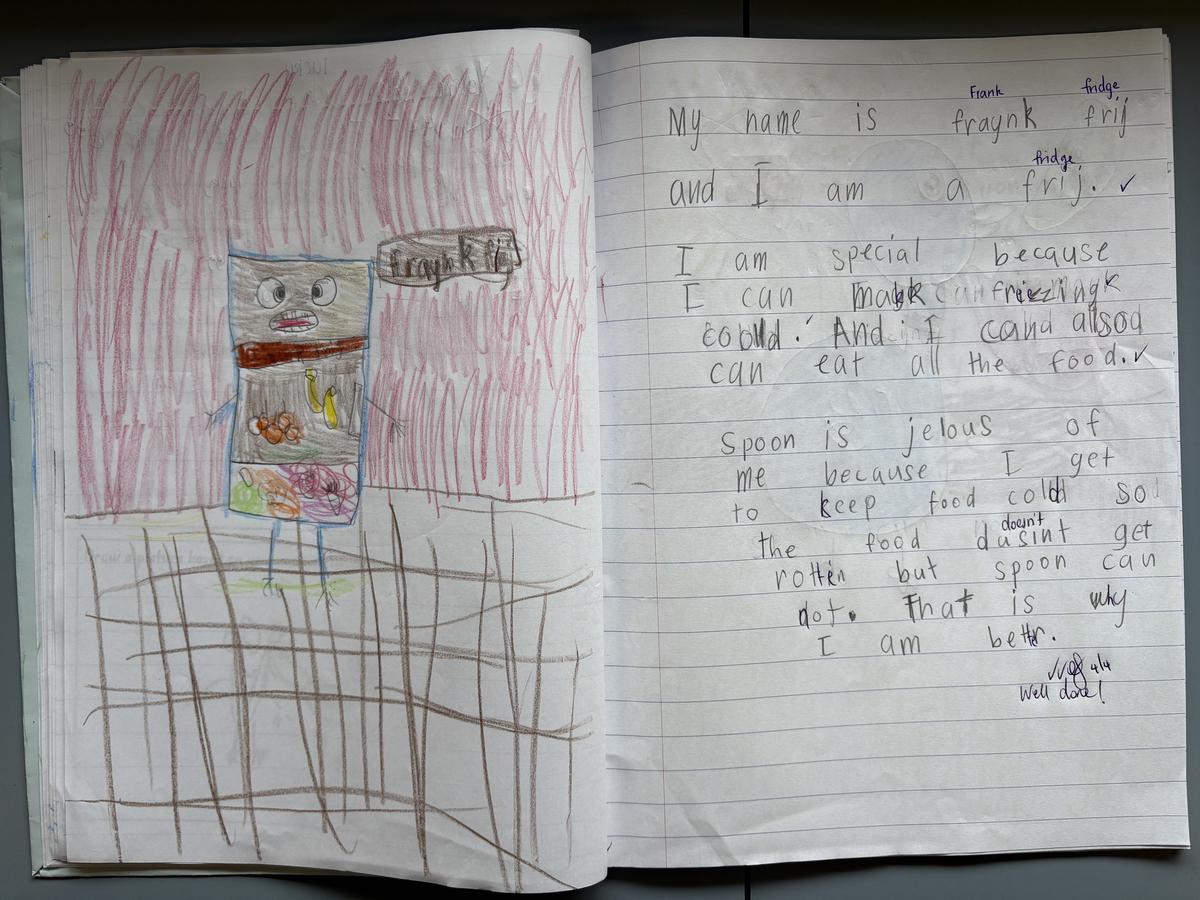 fraynk frij
Frank fridge
My name is fraynk frij
fridge
and I am a frij. ✓
I am special because
I can freezing
And I can
can eat all the food. ✓
Spoon is jelous of
me because I get
to keep food cold so
doesn't
the food dusint get
rotten but spoon can
not. That is why
I am bettr.
4/4
Well done!